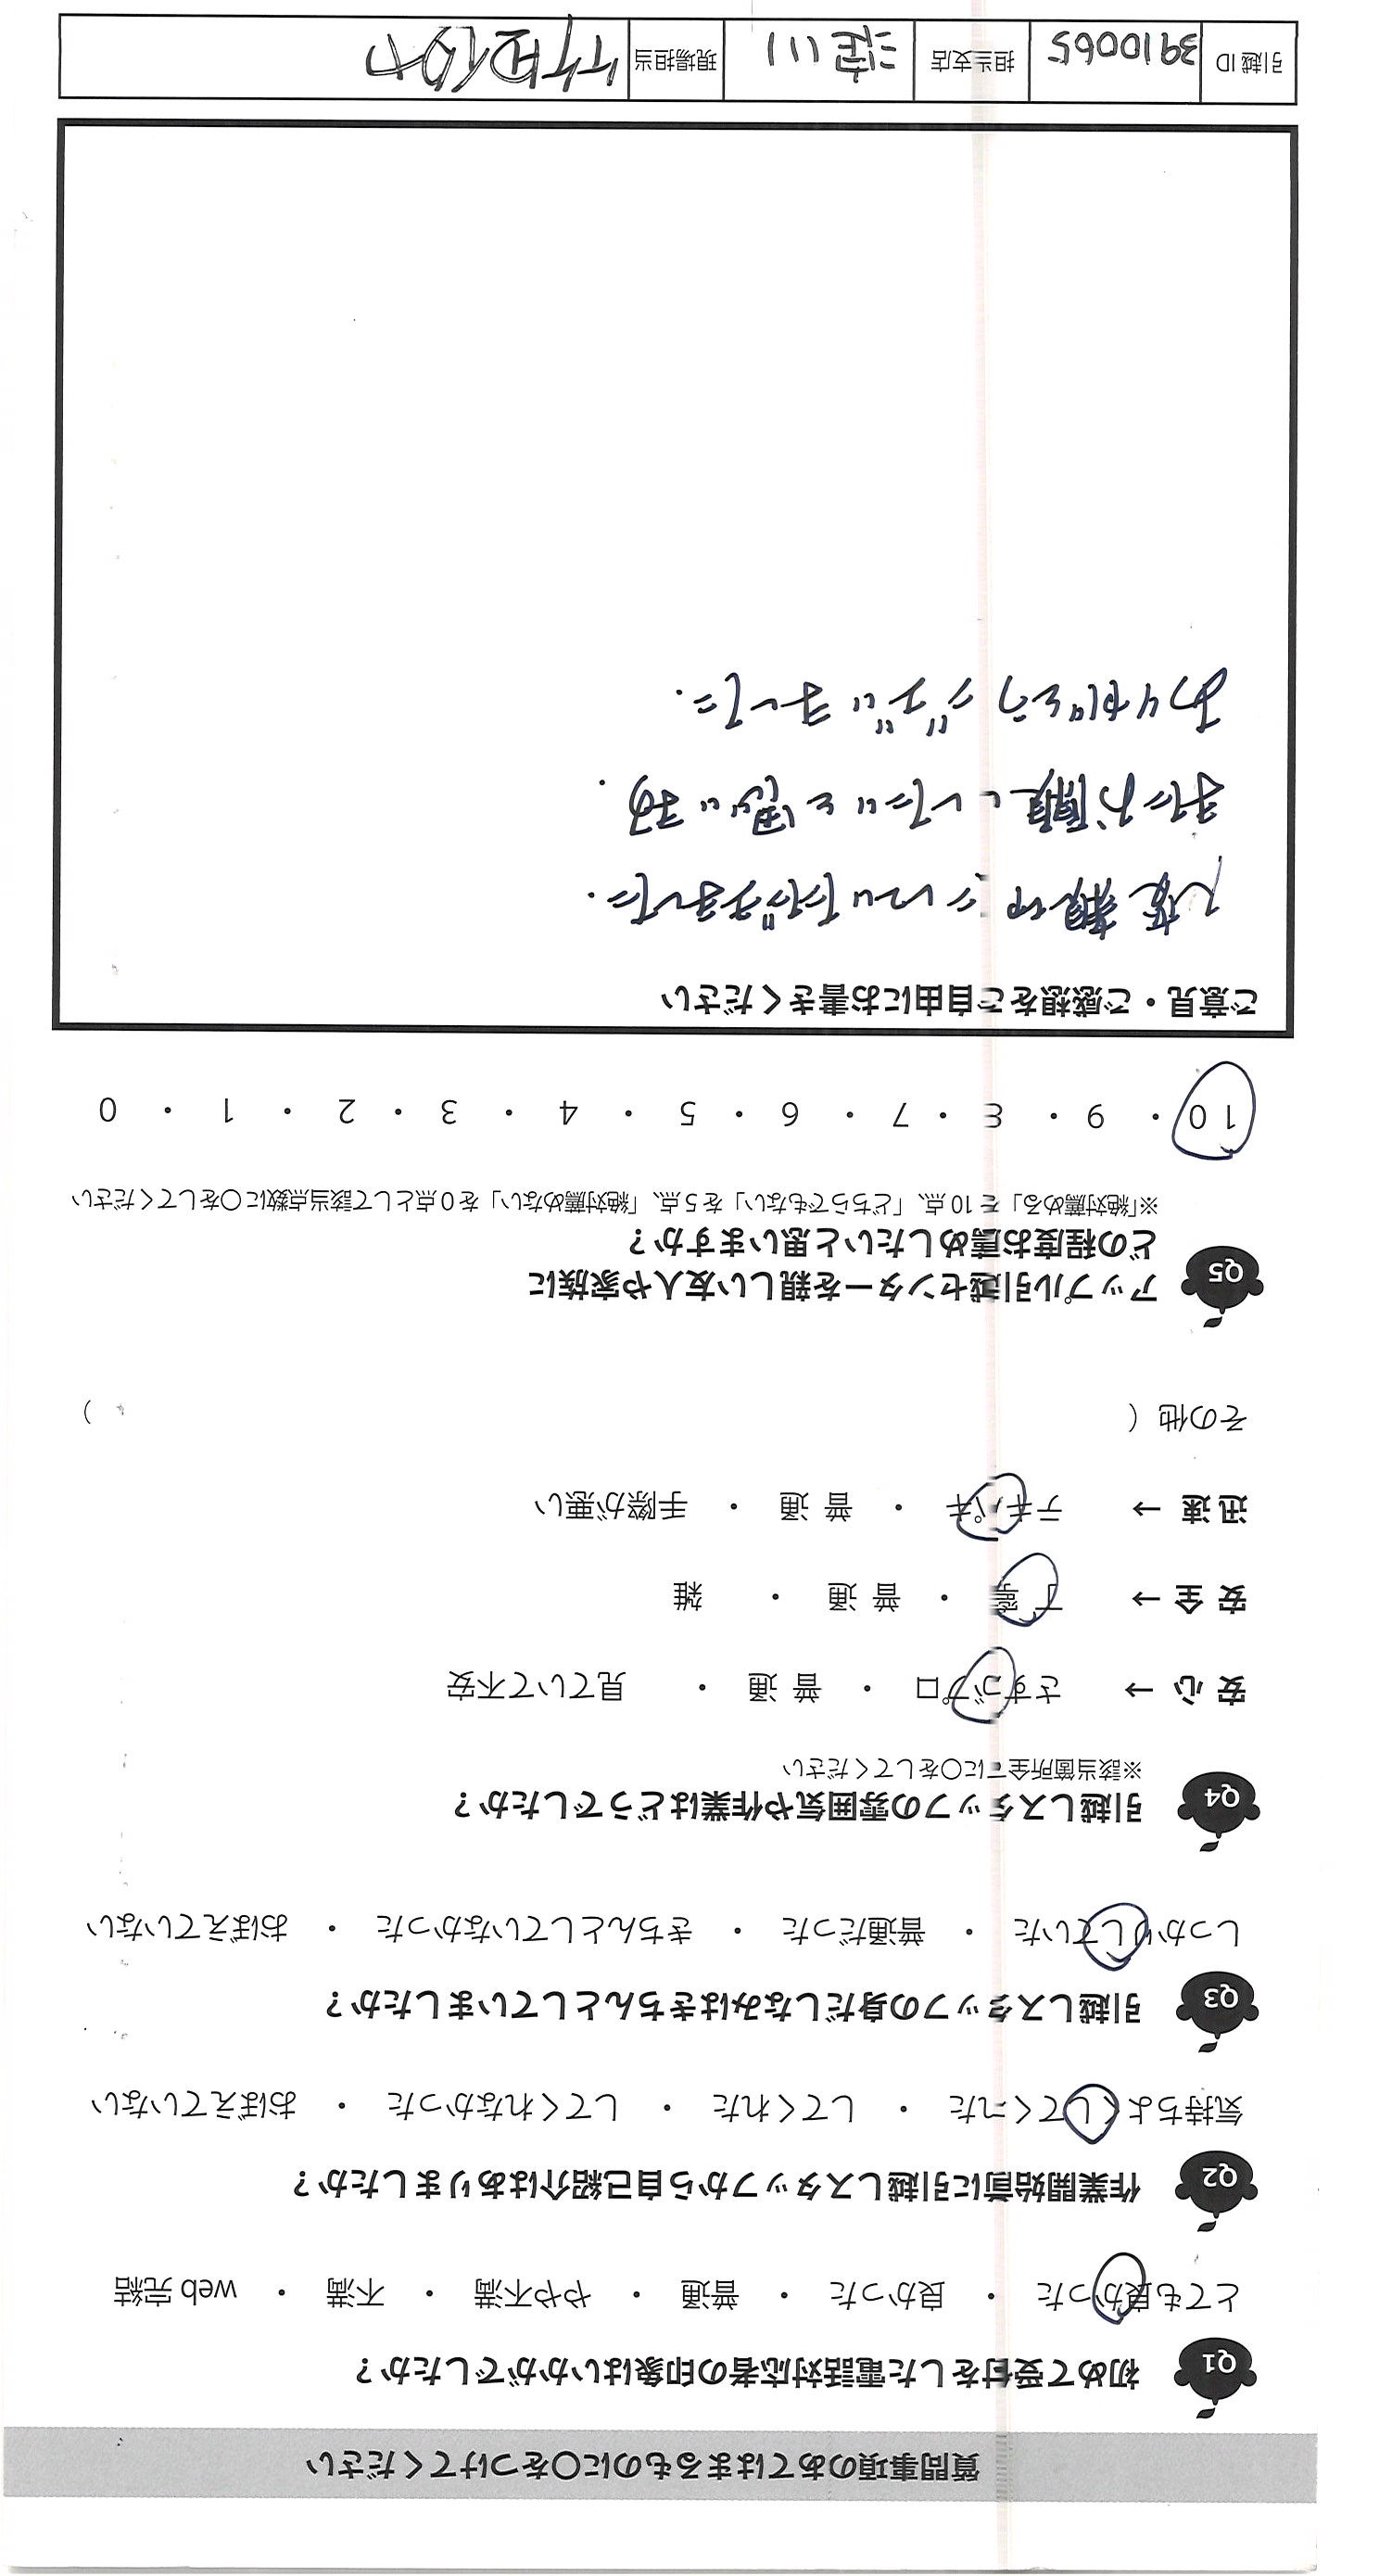 質問事項のあてはまるものに〇をつけてください
Q1 初めて受付をした電話対応者の印象はいかがでしたか？
とても良かった ・ 良かった ・ 普通 ・ やや不満 ・ 不満 ・ web 完結
Q2 作業開始前に引越しスタッフから自己紹介はありましたか？
気持ちよくしてくれた ・ してくれた ・ してくれなかった ・ おぼえていない
Q3 引越しスタッフの身だしなみはきちんとしていましたか？
しっかりしていた ・ 普通だった ・ きちんとしていなかった ・ おぼえていない
Q4 引越しスタッフの雰囲気や作業はどうでしたか？
※該当箇所全てに〇をしてください
安心 → さすがプロ ・ 普通 ・ 見ていて不安
安全 → 丁寧 ・ 普通 ・ 雑
迅速 → テキパキ ・ 普通 ・ 手際が悪い
その他（ ）
Q5 アップル引越センターを親しい友人や家族に
どの程度お薦めしたいと思いますか？
※「絶対薦める」を10点、「どちらでもない」を5点、「絶対薦めない」を0点として該当点数に〇をしてください
10 ・ 9 ・ 8 ・ 7 ・ 6 ・ 5 ・ 4 ・ 3 ・ 2 ・ 1 ・ 0
ご意見・ご感想をご自由にお書きください
していただきました.
またお願いしたいと思います.
ありがとうございました.
引越ID 3910065 担当支店 淀川 現場担当 竹田